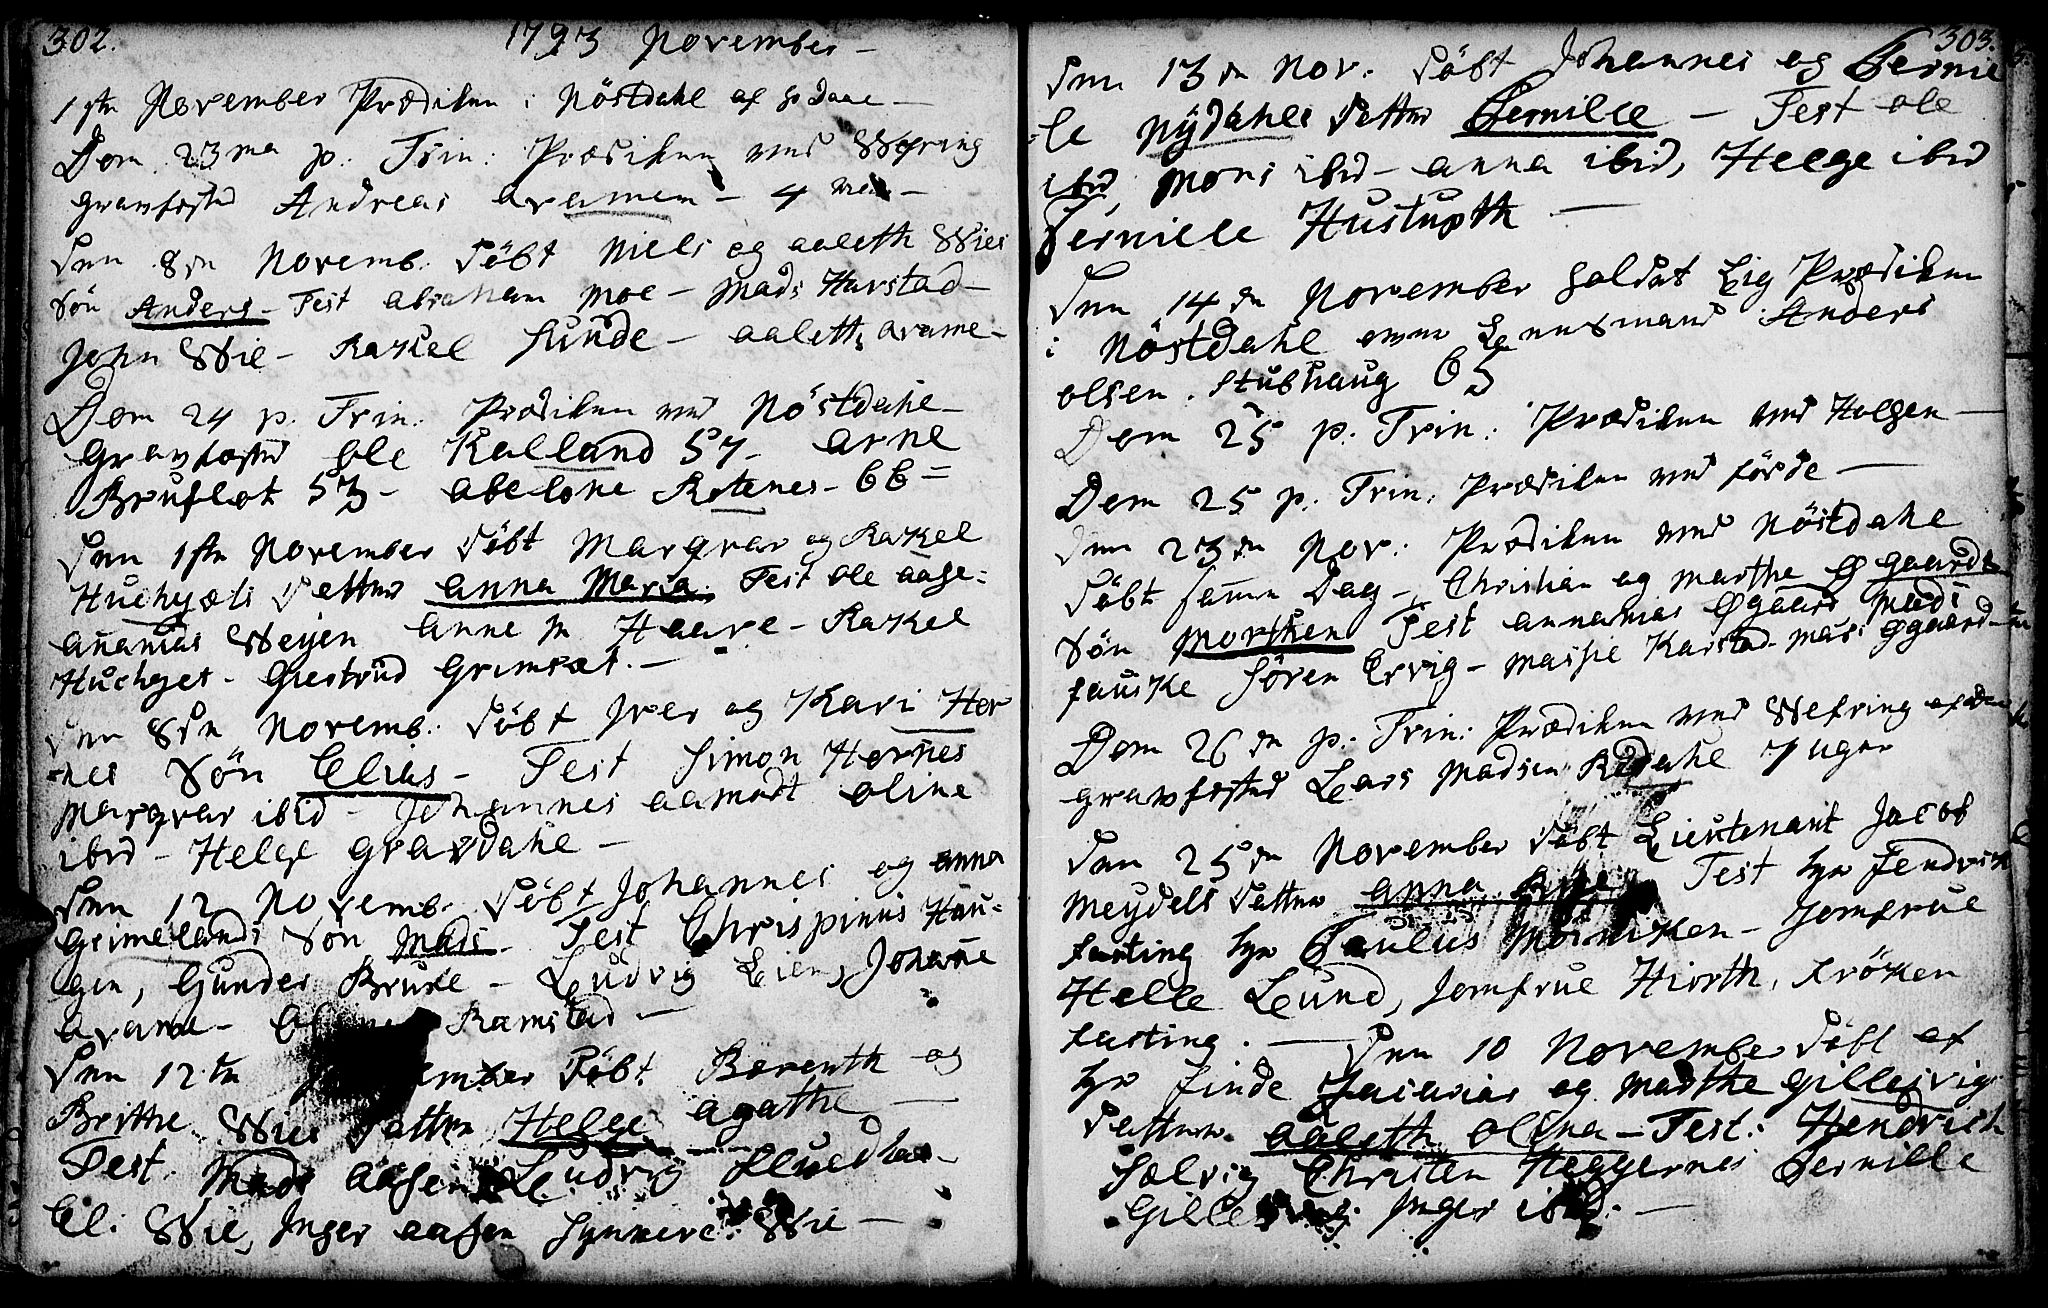 302.
1793 November –
1ste November Prædiken i Nöstdahl af Hr Daae –
Dom 23ma p. Trin: Prædiken ved Wefring
gravfæsted Andreas aramem – 4
Den 8de Novemb. Döbt Niels og aaleth Wies
Sön Anders – Test abraham moe – Mads Harstad –
John Wie – Rakel Sunde – aaleth arame –
Dom 24 p. Trin: Prædiken ved Nöstdahl –
Gravfæsted ole Kalland 57 – arne
Bruflot 53 – abelone Rotenes – 66 =
Den 1ste November Döbt Margvar og Rakel
Huchgæts Datter anna Maria. Test ole aase =
ananias Weyen anne M Haave – Rakel
Huchget – Giertrud Grimsæt. –
Den 8de Novemb. Döbt Iver og Kari Hor
=nes Sön Elias – Test Simon Hornes
Margvar ibid – Johannes aamodt oline
ibid – Helge gravdahl –
Den 12 Novemb. Döbt Johannes og anna
Grimelands Sön Mads – Test Chrispinus Hau-
gen, Gunder Brune – Ludvig Lien, Johanne
arame – Ramstad –
Den 12te Döbt Berenth og
Brithe Wies Datter Helge agathe –
Test. Mads aasen Ludvig
El. Wie, Inger aasen Synneve Wie –
303.
Den 13de Nov. Döbt Johannes og Pernil
=le Nydahls Datter Pernille – Test ole
ibid, Mons ibid – anna ibid, Helge ibid
Pernille Hustupth –
Den 14de November holdet Lig Prædiken
i Nöstdahl over Lensmand Anders
olsen Stubhaug 65
Dom 25 p. Trin: Prædiken ved Holsen –
Dom 25 p. Trin: Prædiken ved förde –
Den 23de Nov: Prædiken ved Nöstdahl
Döbt samme Dag –, Christian og Marthe Øgaards
Sön Morthen Test annanias Øgaard Mads
fauske Sören Ervig – Massie Karstad – Mari Øgaard –
Dom 26de p. Trin: Prædiken ved Wefring
gravfæsted Lars Madsen Rödahl 7 uger
Den 25de November Döbt Lieutenant Jacob
Meydels Datter anna Test hr Fendrich
fasting hr Paulus – Jomfrue
Helle Lund, Jomfrue Hiorth, Fröken
fasting. – Den 10 November Döbt af
hr finde Zacarias og Marthe Gillesvigs
Datter aaleth olina – Test: Hendrich
Solvig Christen Heggernes Pernille
Gillesvig Inger ibid. –